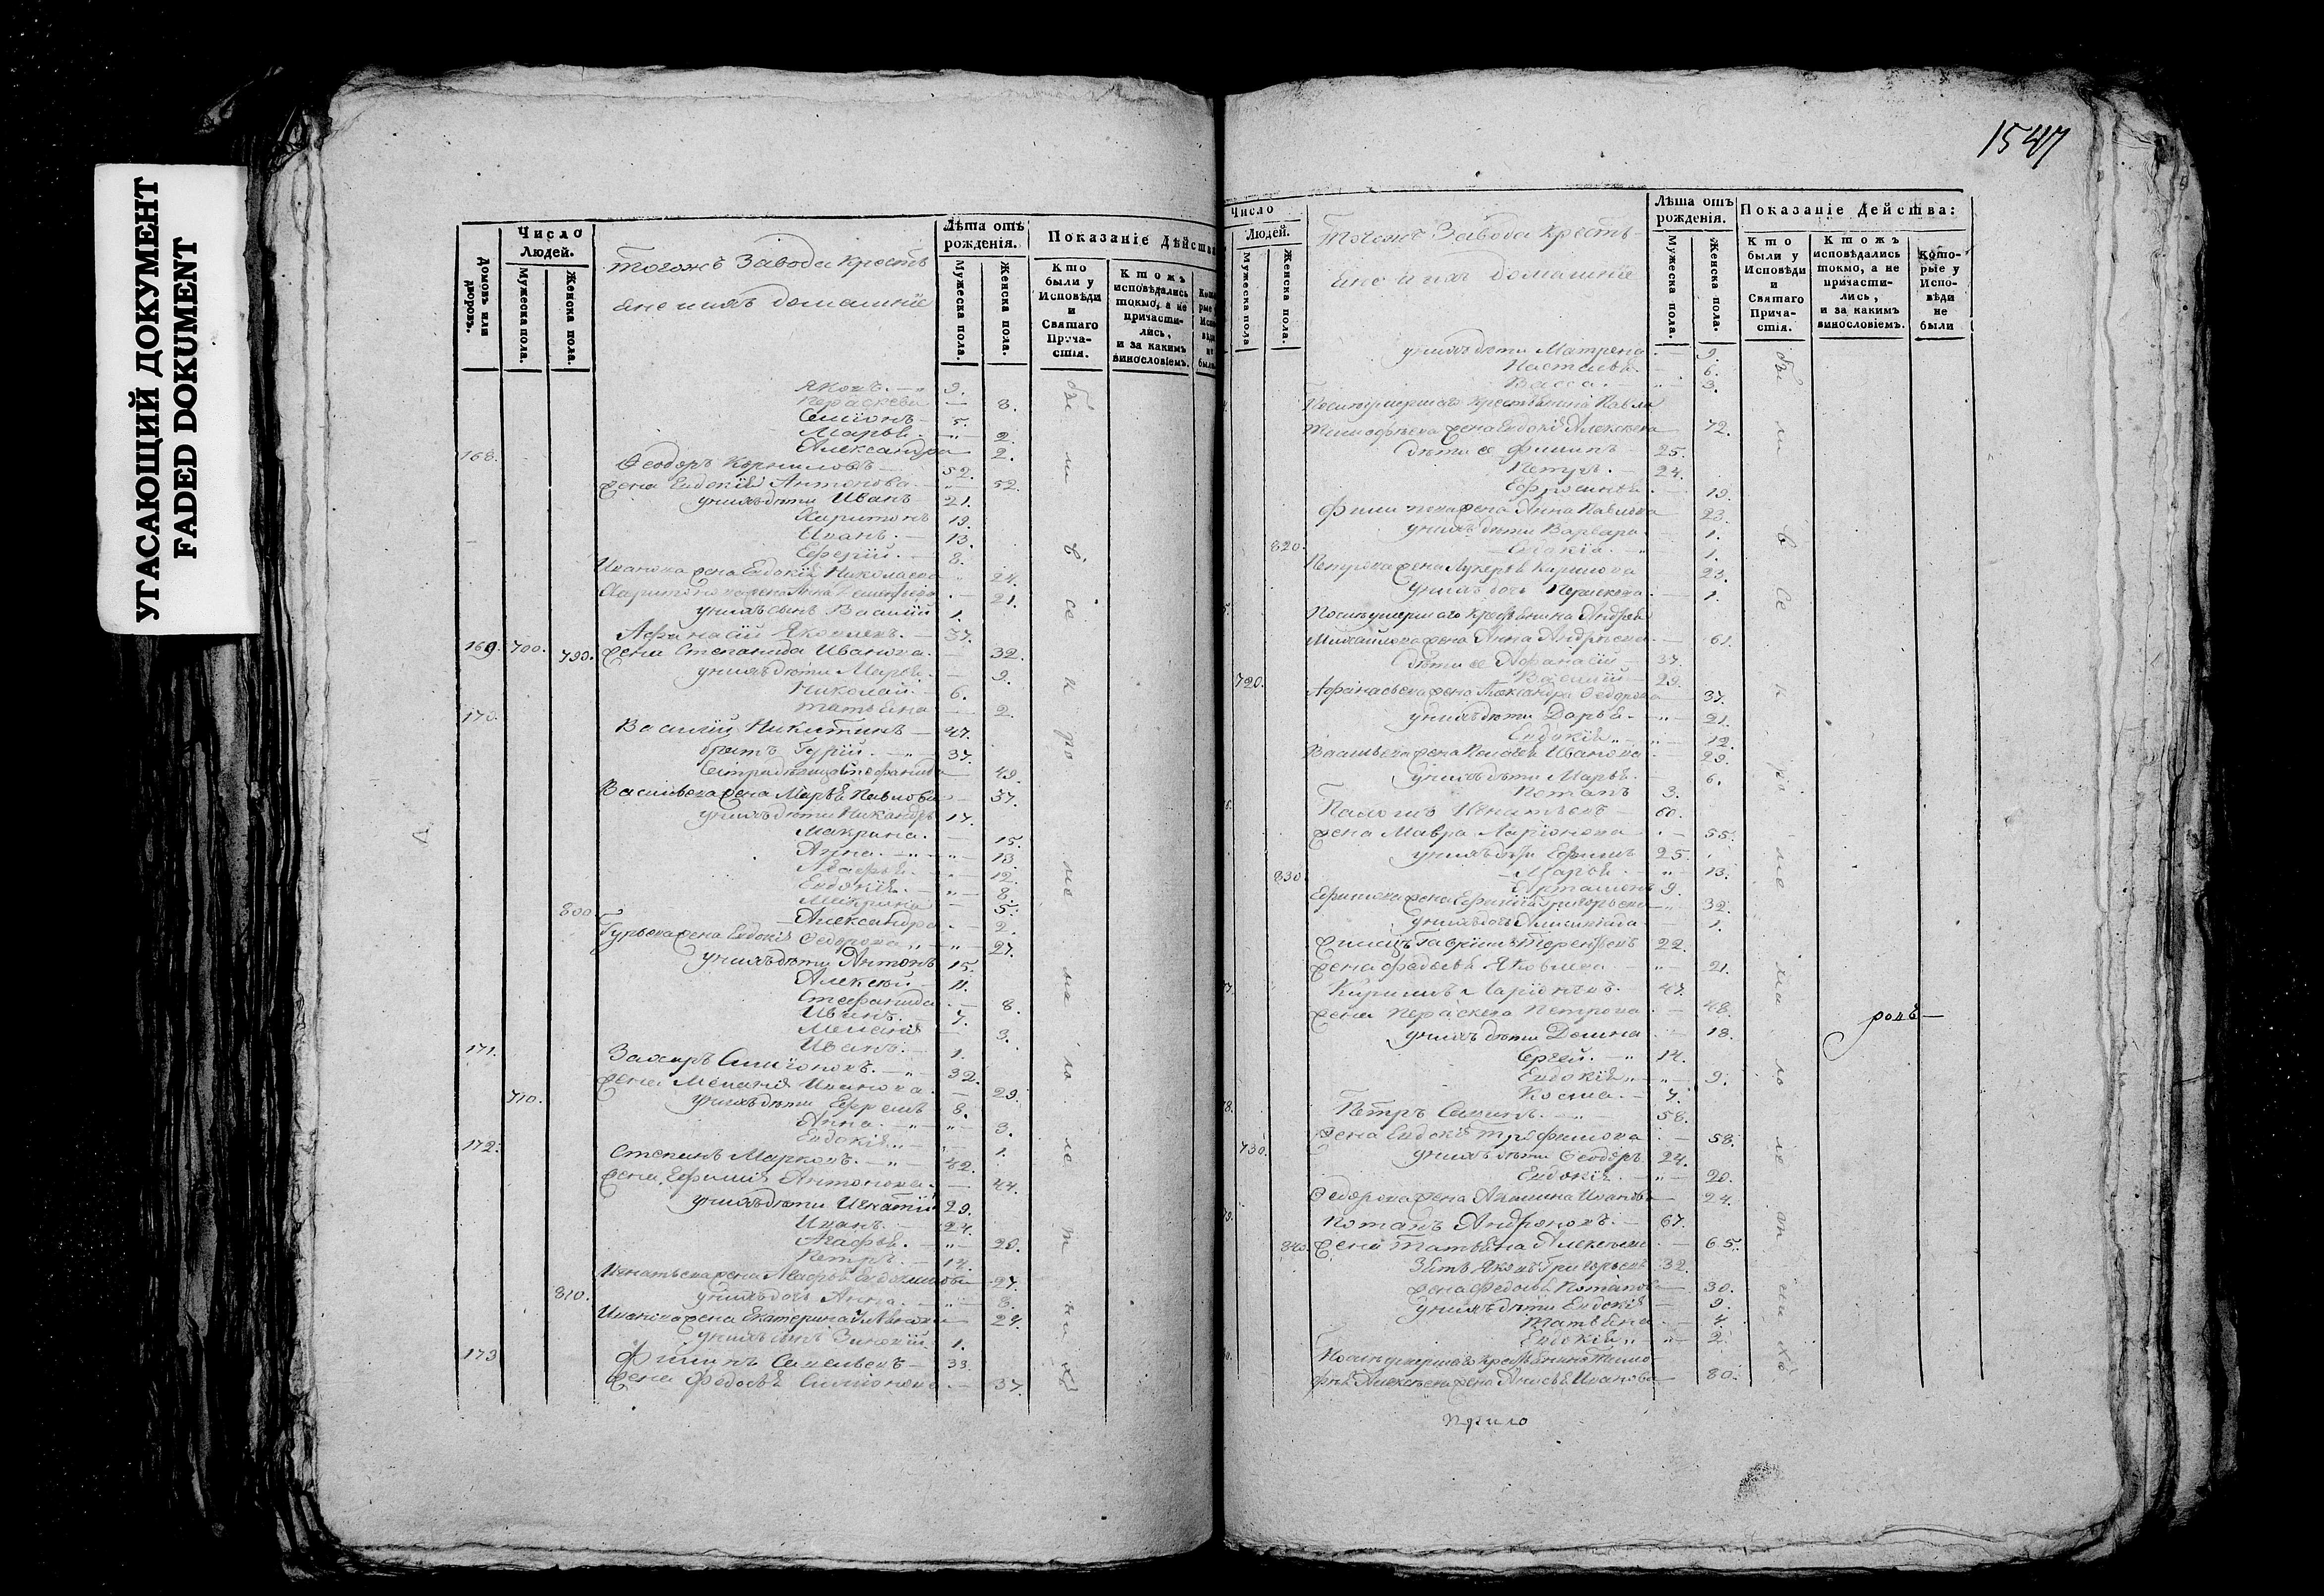 УГАСАЮЩИЙ ДОКУМЕНТ
FADED DOKUMENT
Домовъ или дворовъ.
Число Людей.
Мужеска пола.
Женска пола.
Тогожъ Завода кресть
яне и ихъ домашніе
Лѣта отъ рожденія.
Мужеска пола.
Женска пола.
Показаніе Дѣйства
Кто были у Исповѣди и Святаго Прича-стія.
Ктожъ исповѣдались токмо, а не причасти-лись, и за какимъ винословіемъ.
Яковъ 9.
Параскева 8.
Симіонъ 5.
Марья 2.
Александра 2.
168. Ѳеодоръ Корниловъ 52.
жена Евдокія Антонова 52.
у нихъ дѣти Иванъ 21.
Харитонъ 19.
Иванъ 13.
8.
Иванова жена Евдокія Николаева 24.
Харитонова жена Анна 21.
у нихъ сынъ Василій 1.
Афанасій Яковлевъ 37.
169. 700. 790. жена Степанида Иванова 32.
у нихъ дѣти Марья 9.
Николай 6.
Татьяна 2.
170. Василій Никитинъ 47.
братъ Гурій 37.
49.
Васильева жена Марья Павлова 37.
у нихъ дѣти Никандръ 17.
Макрина 15.
Анна 13
Агафья 12.
Евдокія 8.
Макрина 5.
800 Александра 2.
Гурьева жена Евдокія Ѳедорова 27.
у нихъ дѣти Антонъ 15.
Алексѣй 11.
Стефанида 8.
Иванъ 7.
Меланія 3.
Иванъ 1.
171. Захаръ Симіоновъ 32.
жена Меланія Иванова 29.
710. у нихъ дѣти Ефремъ 8.
Анна 3.
Евдокія 1.
172. Степанъ Марковъ 42.
жена Ефимія Антонова 44.
у нихъ дѣти Игнатій 29.
Иванъ 24.
Агафья 20.
Петръ 14.
Игнатьева жена Агафья 27.
810. у нихъ дочь Анна 3.
Иванова жена Екатерина 24.
у нихъ сынъ Зиновій 1.
173 Филипъ Савельевъ 33.
жена Федосья Симіонова 37.
1547
Число Людей.
Мужеска пола
Женска пола.
Тогожъ Завода кресть-
яне и ихъ домашніе
Лѣта отъ рожденія.
Мужеска пола.
Женска пола.
Показаніе Действа:
Кто были у Исповѣди и Святаго Прича-стія.
Ктожъ исповѣдались токмо, а не причасти-лись, и за какимъ винословіемъ.
Кото-рые у Испо-вѣди не были
у нихъ дѣти Матрена 9.
Настасья 6.
Васса 3.
Послѣ умершаго крестьянина Павла
Тимофѣева жена Евдокія Алексѣева 72.
дѣти ее Филипъ 25.
Петръ 24.
Ефросинья 19.
Филипова жена Анна Павлова 23.
у нихъ дѣти Варвара 1.
820. Евдокія 1.
Петрова жена Лукерья Кирилова 23.
у нихъ дочь Параскева 1.
Послѣ умершаго крестьянина Андрея
Михайлова жена Анна Андрѣева 61.
дѣти ее Афанасій 37.
720. Василій 29.
Афанасьева жена Александра Ѳедорова 37.
у нихъ дѣти Дарья 21.
Евдокія 12.
Васильева жена Иванова 29.
у нихъ дѣти Марья 6.
Потапъ 3.
Игнатьевъ 60.
жена Мавра Ларіонова 55.
у нихъ дѣти Ефимъ 25.
830 Марья 13.
9.
Ефимова жена Ефимія Григорьева 32.
у нихъ дочь 1.
Гаврила Терентьевъ 22.
жена Федосья Яковлева 21.
Кирилъ Ларіоновъ 47.
жена Параскева Петрова 48.
у нихъ дѣти Домна 18.
Сергей 14.
Евдокія 9.
Косма 7.
Петръ 58.
730. жена Евдокія Трофимова 58.
у нихъ дѣти Ѳеодоръ 24.
Евдокія 20.
Ѳедорова жена Иванова 24.
Потапъ Андроновъ 67.
840. жена Татьяна Алексѣева 65.
Зять Яковъ Григорьевъ 32.
жена Федосья Потапова 30.
у нихъ дѣти Евдокія 9.
Татьяна 4.
Евдокія 2.
Послѣ умершаго крестьянина Тимо
фѣя Алексѣева жена Анисья Иванова 80.